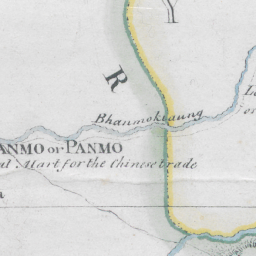 Y
R
Bhanmokiaung
ANMO or PANMO
al. Mart for the Chinese trade